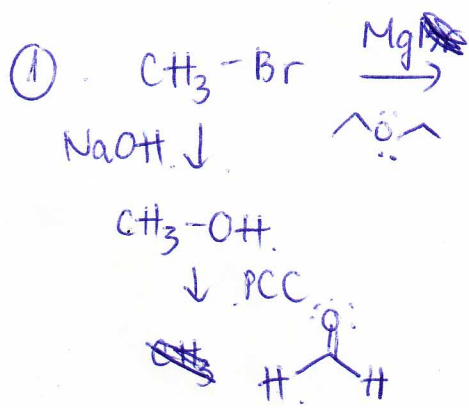 ① CH₃-Br Mg
NaOH ↓ Ö
CH₃-OH
↓ PCC
O
H H